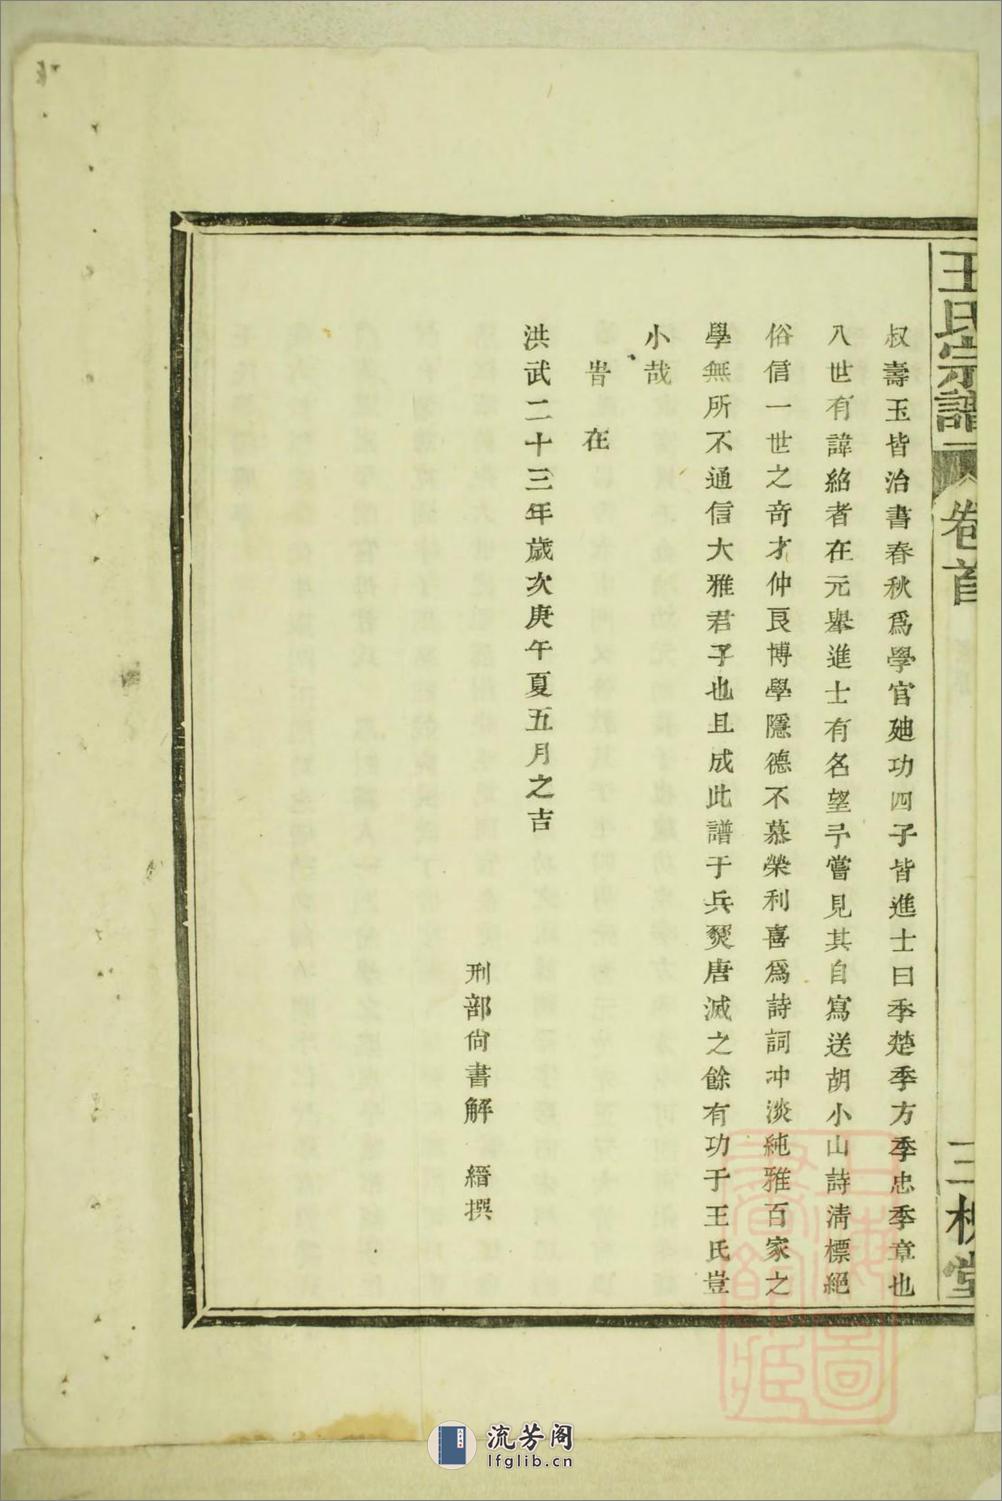 王氏宗譜
卷首
三槐堂
叔壽玉皆治書春秋爲學官廸功四子皆進士曰季楚季方季忠季章也
八世有諱紹者在元舉進士有名望予嘗見其自寫送胡小山詩淸標絕
俗信一世之奇才仲良博學隱德不慕榮利喜爲詩詞冲淡純雅百家之
學無所不通信大雅君子也且成此譜于兵燹唐滅之餘有功于王氏豈
小哉
旹在
洪武二十三年歲次庚午夏五月之吉
刑部尙書解 縉撰
上海圖
書館藏
流芳阁
lfglib.cn